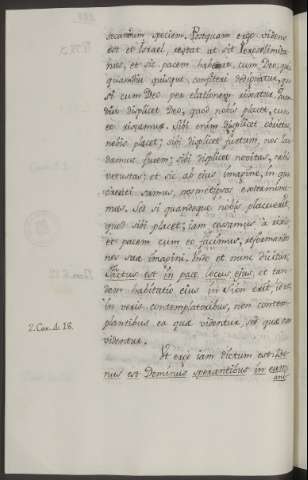 secundum speciem. Postquam ergo videns
est et Israel, restat ut sit Hierosolymita
nus, et sic pacem habeat cum Deo; quia
quamdiu quisque
si cum Deo per elationem rixatur. Quam
diu displicet Deo, quod nobis placet, cum
eo rixamur. Sibi enim displicet coitus,
nobis placet; sibi displicet furtum, nos lau
damus furem; sibi displicet novitas, nobis
vetustas; et sic ab eius imagine, in qua
creati sumus, nosmetipsos exterminamus
mus. Sed si quandoque nobis placuerit
quod sibi placet, iam cessamus à rixis
et pacem cum eo facimus, reformando
nos suae imagini. Unde et nunc dicitur:
Factus est in pace locus eius, et tan
dem habitatio eius in Sion erit, id est
in veris contemplatoribus, non contem
plantibus ea quae videntur, sed quae non
videntur.
2. Cor. 4. 18.
Et quia iam dictum est: Bo
nus est Dominus sperantibus in eum,
ani